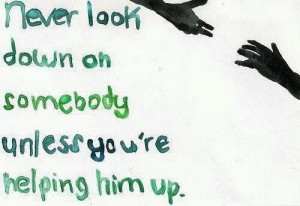 Never look
down on
somebody
unless you're
helping him up.